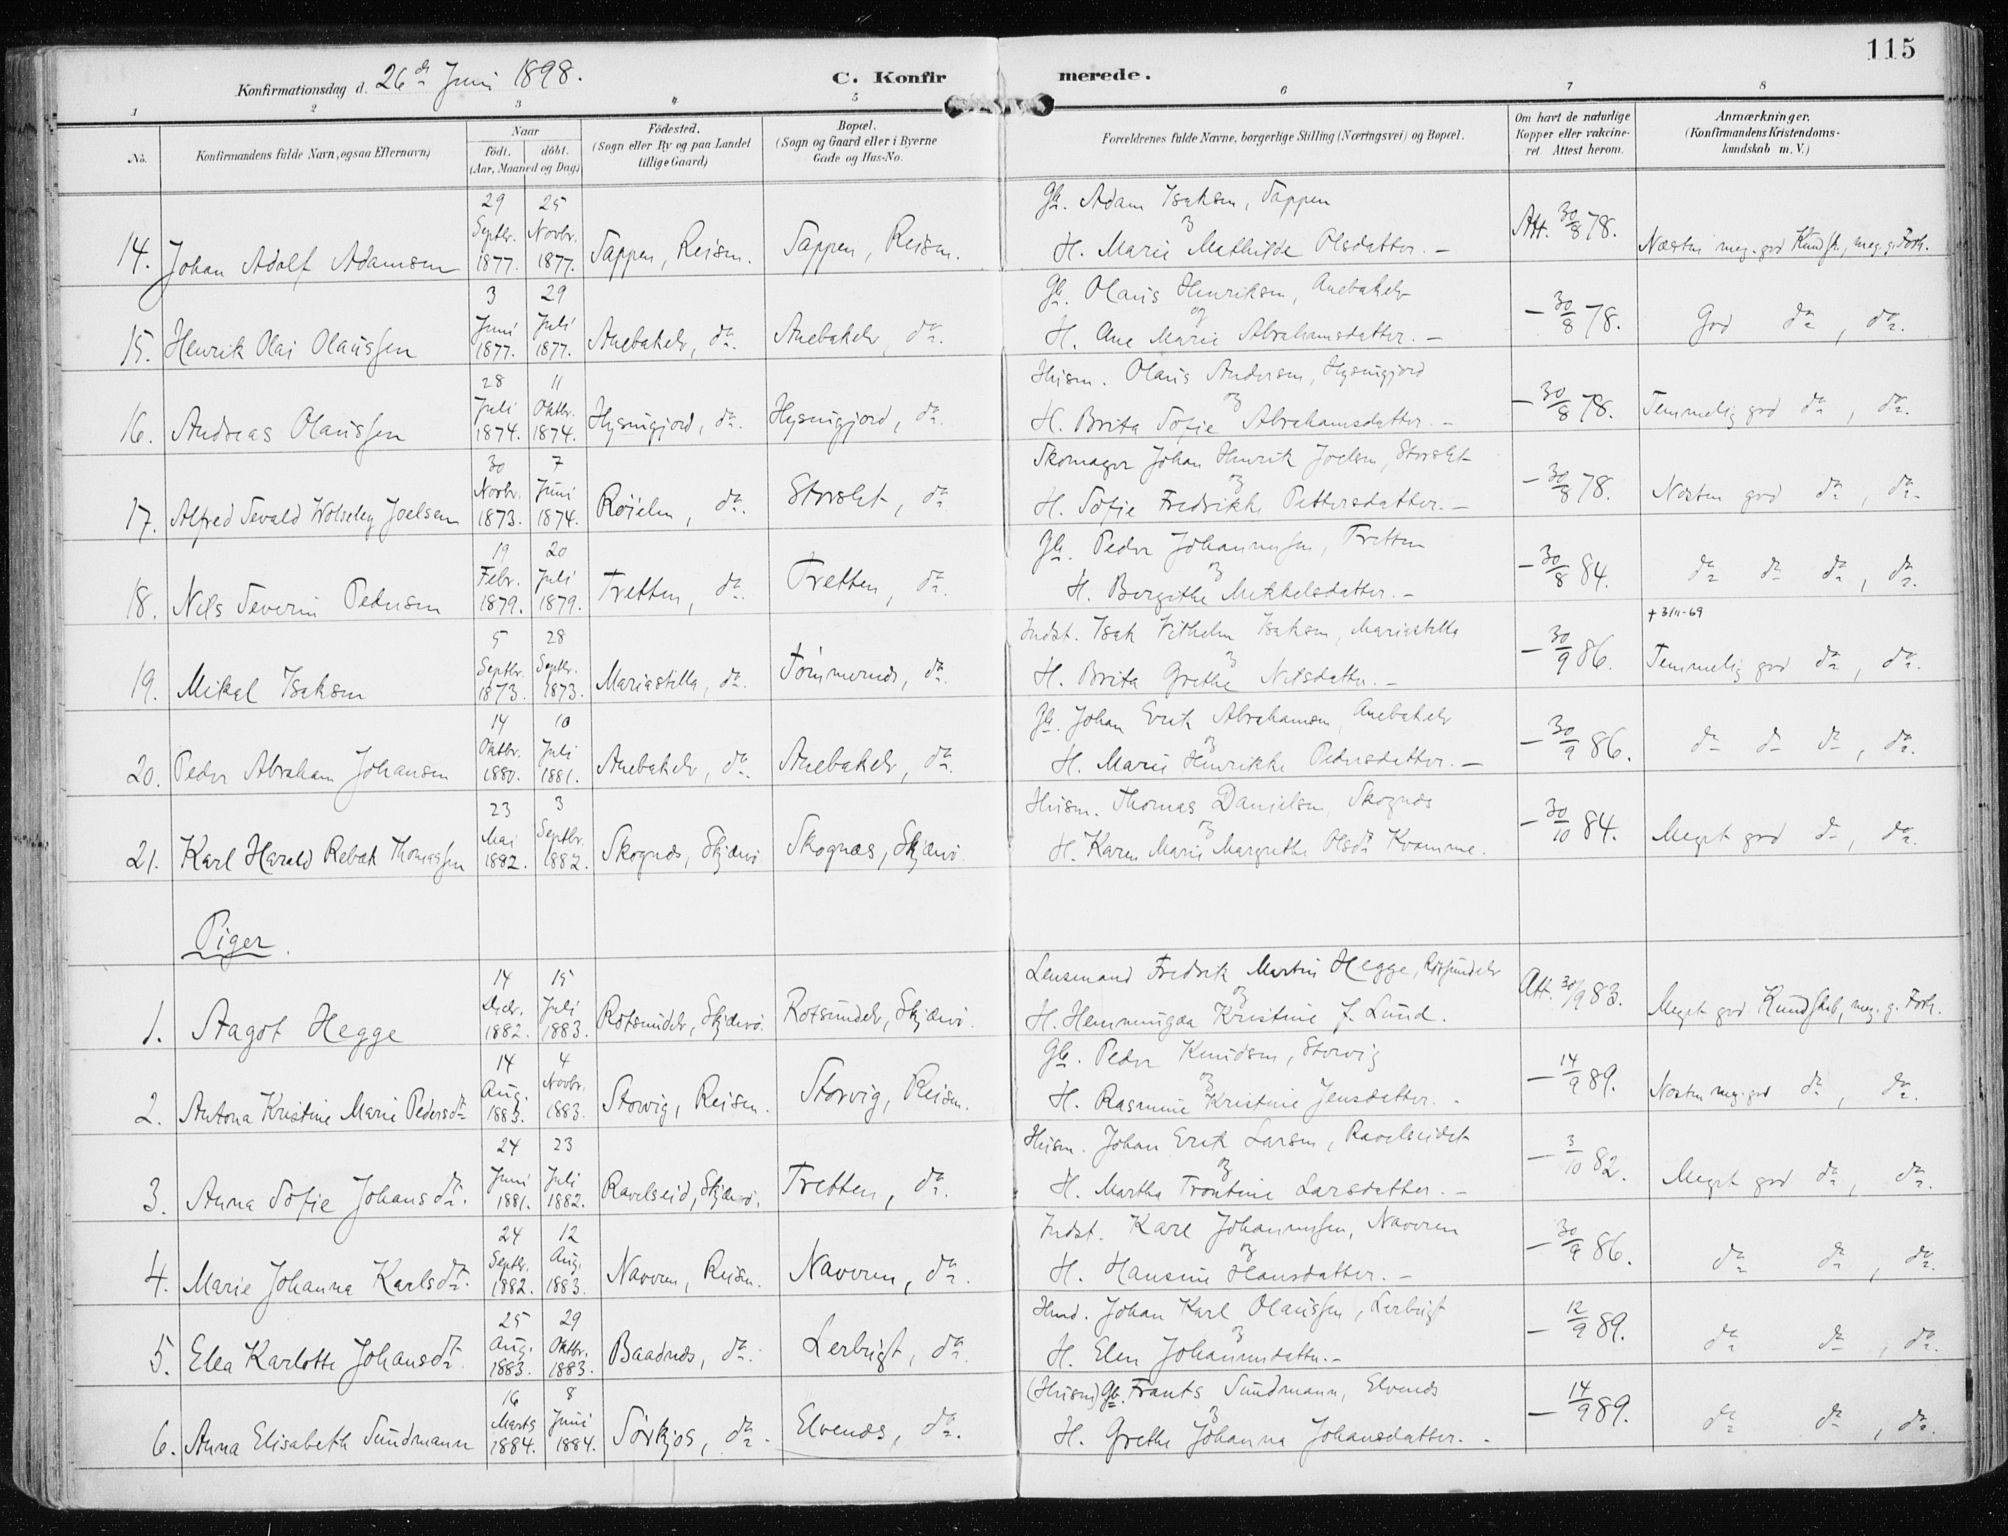 115
Konfirmationsdag d. 26de Juni 1898.
C. Konfirmerede.
1 2 3 4 5 6 7 8
No.
Konfirmandens fulde Navn, ogsaa Efternavn)
Naar
födt. döbt.
(Aar, Maaned og Dag)
Födested.
(Sogn eller By og paa Landet
tillige Gaard)
Bopæl.
(Sogn og Gaard eller i Byerne
Gade og Hus-No.
Forældrenes fulde Navne, borgerlige Stilling (Næringsvei) og Bopæl.
Om havt de naturlige
Kopper eller vakcine-
ret. Attest herom.
Anmærkninger.
(Konfirmandens Kristendoms-
kundskab m. V.)
14. Johan Adolf Adamsen 29 Septbr. 1877. 25 Novbr. 1877. Sappen, Reisen. Sappen, Reisen.
Gb. Adam Isaksen, Sappen
og
H. Marie Mathilde Olsdatter. —
Att. 30/8 78. Næsten meg. god Kundsk., meg. g. Forh.
15. Henrik Olai Olaussen 3 Juni 1877. 29 Juli 1877. Anebakelv, do. Anebakelv, do.
Gb. Olaus Henriksen, Anebakelv
og
H. Ane Marie Abrahamsdatter. —
— 30/8 78. God do, do.
16. Andreas Olaussen 28 Juli 1874. 11 Oktbr. 1874. Hysingjord, do. Hysingjord, do.
Husm. Olaus Andersen, Hysingjord
og
H. Brita Sofie Abrahamsdatter. —
— 30/8 78. Temmelig god do, do.
17. Alfred Sevald Wolseley Joelsen 30 Novbr. 1873. 7 Juni 1874. Röielen, do. Storslet, do
Skomager Johan Henrik Joelsen, Storslet
og
H. Sofie Fredrikke Pettersdatter. —
— 30/8 78. Næsten god do do
18. Nils Severin Pedersen 19 Febr. 1879. 20 Juli 1879. Tretten, do. Tretten, do.
Gb. Peder Johannessen, Tretten
og
H. Bergithe Mikkelsdatter. —
— 30/8 84. do do do, do.
+ 3/11-69
19. Mikal Isaksen 5 Septbr. 1873. 28 Septbr. 1873. Mariastilla, do. Tömmernes, do.
Indst. Isak Vilhelm Isaksen, Mariastilla
og
H. Brita Grethe Nilsdatter. —
— 30/9 86. Temmelig god do, do.
20. Peder Abraham Johansen 14 Oktbr. 1880. 10 Juli 1881. Anebakelv, do. Anebakelv, do.
Gb. Johan Erik Abrahamsen, Anebakelv
og
H. Marie Henrikke Pedersdatter. —
— 30/9 86. do do do, do.
21. Karl Harald Rebek Thomassen 23 Mai 1882. 3 Septbr. 1882. Skognæs, Skjærvö Skognæs, Skjærvö.
Husm. Thomas Danielsen, Skognæs
og
H. Karen Marie Margrethe Olsdt Kvamme.
— 30/10 84. Meget god do, do.
Piger.
1. Aagot Hegge 14 Decbr. 1882. 15 Juli 1883. Rotsundelv, Skjærvö. Rotsundelv, Skjærvö.
Lensmand Fredrik Martin Hegge, Rotsundelv
og
H. Hemmingaa Kristine f. Lund.
Att. 30/9 83. Meget god Kundskab, meg. g. Forh.
2. Antona Kristine Marie Pedersdt 14 Aug. 1883. 4 Novbr. 1883. Storvig, Reisen. Storvig, Reisen.
Gb. Peder Knudsen, Storvig
og
H. Rasmine Kristine Jensdatter. -
— 14/9 89. Næsten meg. god do, do.
3. Anna Sofie Johansdt. 24 Juni 1881. 23 Juli 1882. Ravelseid, Skjærvö. Tretten, do.
Husm. Johan Erik Larsen, Ravelseidet
og
H. Martha Trontine Larsdatter. —
— 3/10 82. Meget god do, do.
4. Marie Johanna Karlsdt. 24 Septbr. 1882. 12 Aug. 1883. Navren, Reisen. Navren, do.
Indst. Karl Johannessen, Navren
og
H. Hansine Hansdatter. —
— 30/9 86. do do, do.
5. Elea Karlotte Johansdt. 25 Aug. 1883. 29 Oktbr. 1883. Baadnes, do. Lerbugt, do.
Johan Karl Olaussen, Lerbugt
og
H. Elen Johannesdatter. —
— 12/9 89. do do, do.
6. Anna Elisabeth Sundmann 16 Marts 1884. 8 Juni 1884. Sörkjos, do. Elvenes, do.
(Husm) Gb. Frants Sundmann, Elvenes
og
H. Grethe Johanna Johansdatter. -
— 14/9 89. do do, do.